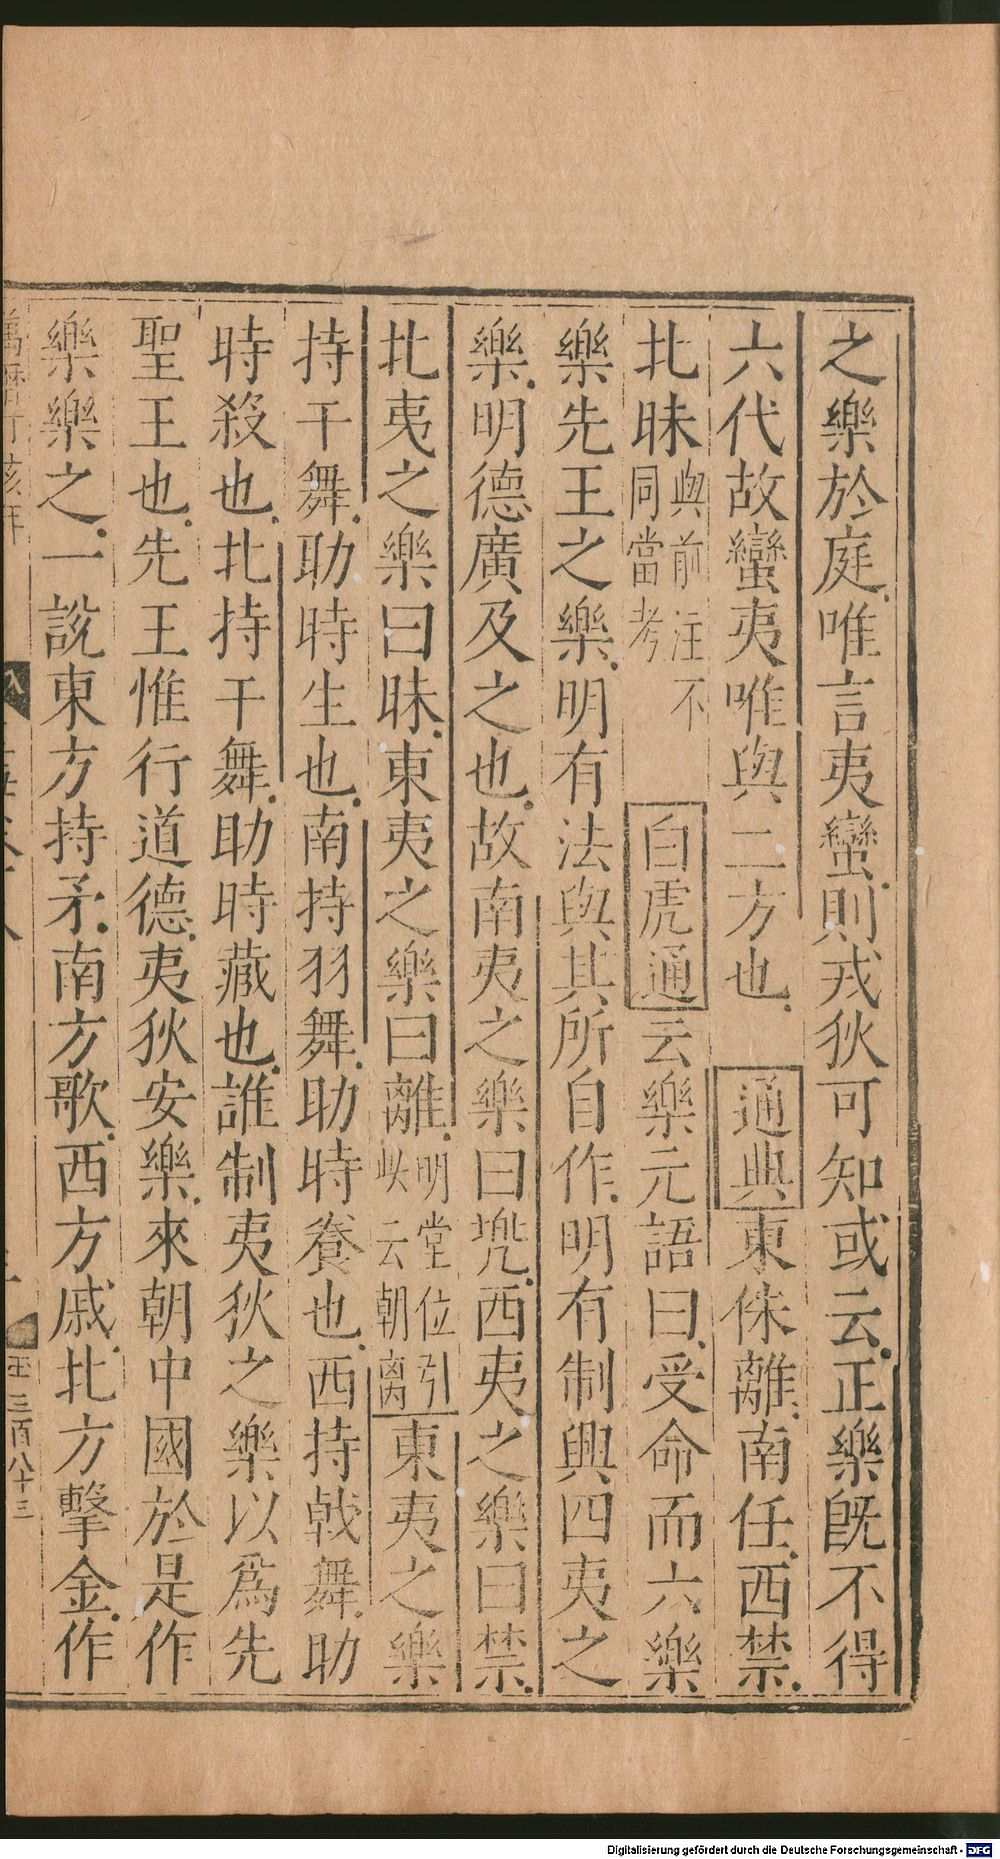 之樂於庭唯言夷蠻則戎狄可知或云正樂旣不得
六代故蠻夷唯與二方也 通典東侏離南任西禁
北昧與前注不同當考 白虎通云樂元語曰受命而六樂
樂先王之樂明有法與其所自作明有制興四夷之
樂明德廣及之也故南夷之樂曰兠西夷之樂曰禁
北夷之樂曰昧東夷之樂曰離明堂位引此云朝离東夷之樂
持干舞助時生也南持羽舞助時養也西持戟舞助
時殺也北持干舞助時藏也誰制夷狄之樂以爲先
聖王也先王惟行道德夷狄安樂來朝中國於是作
樂樂之一說東方持矛南方歌西方戚北方擊金作
三百八十三
Digitalisierung gefördert durch die Deutsche Forschungsgemeinschaft - DFG